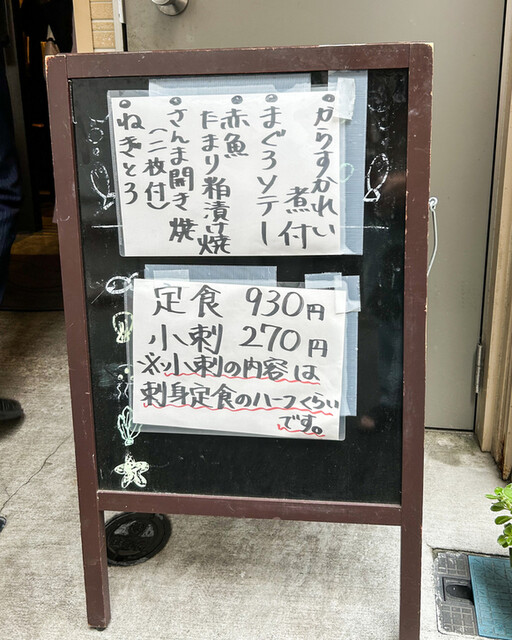 からすかれい
煮付
まぐろソテー
赤魚
たまり粕漬け焼
さんま開き焼
(二枚付)
ねぎとろ
定食 930円
小刺 270円
※小刺の内容は
刺身定食のハーフくらい
です。